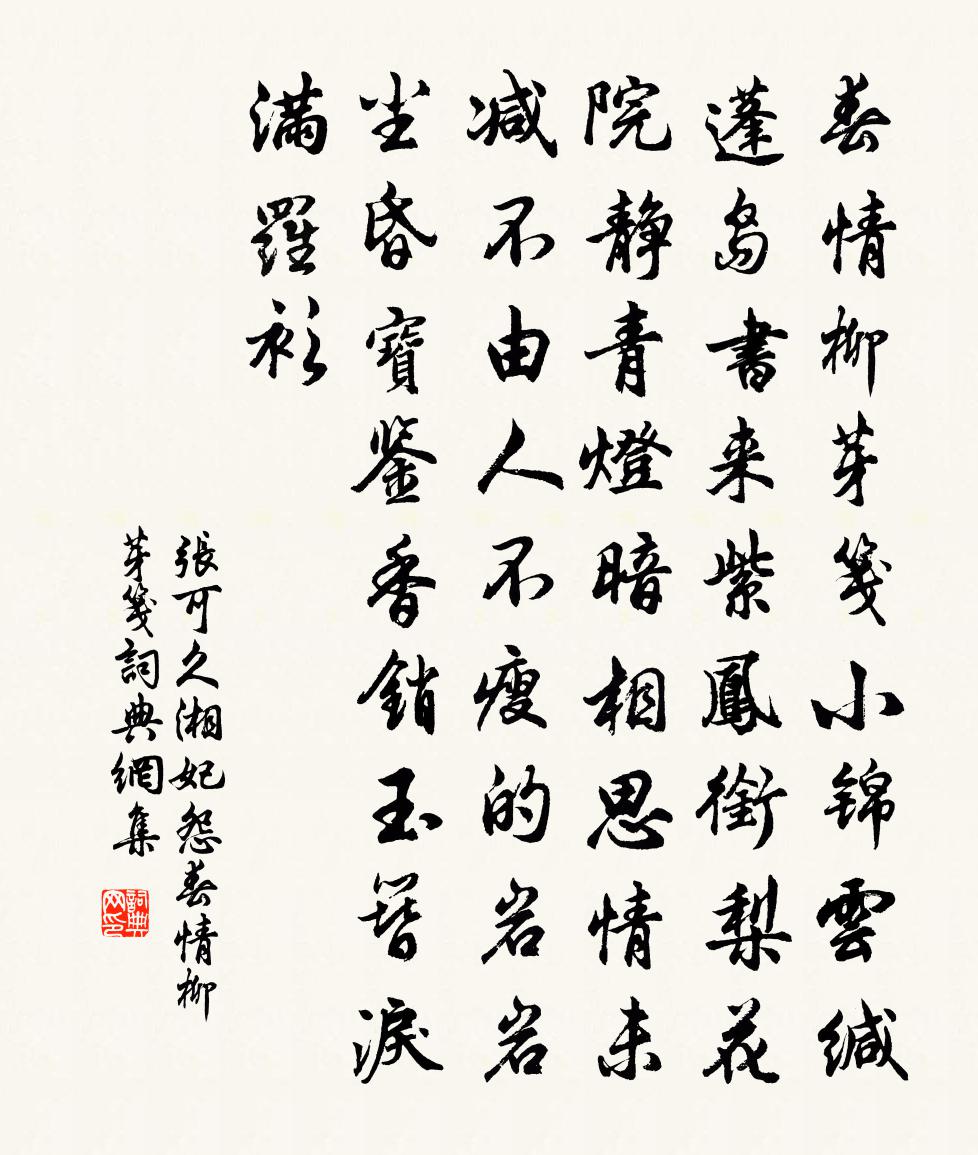 春情柳芽箋小錦雲緘
蓬島書来紫鳳銜梨花
院靜青燈暗相思情未
减不由人不瘦的岩岩
尘昏寶鑒香銷玉簪淚
滿羅衫
張可久湘妃怨春情柳
芽箋詞典網集
詞典
网印